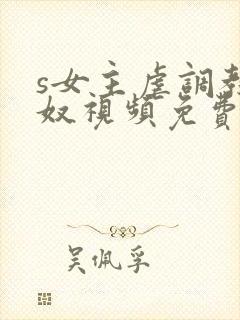 s女主虐調教
奴視頻免費
吴佩孚